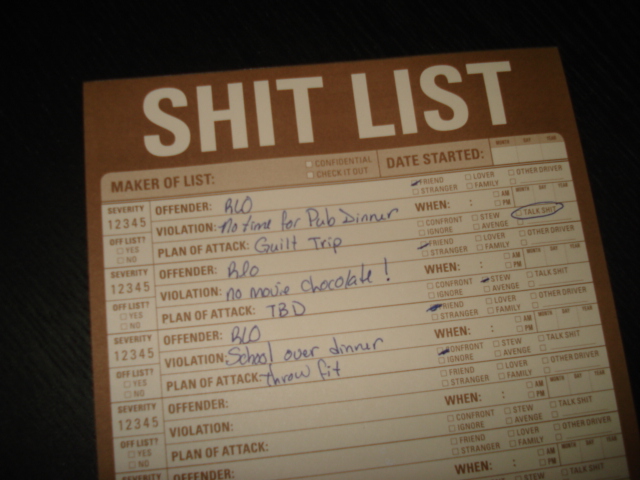 SHIT LIST
MAKER OF LIST: CONFIDENTIAL CHECK IT OUT DATE STARTED: MONTH DAY YEAR
SEVERITY 1 2 3 4 5 OFFENDER: RLO FRIEND STRANGER LOVER FAMILY OTHER DRIVER
VIOLATION: no time for Pub Dinner WHEN: : AM PM MONTH DAY YEAR
OFF LIST? YES NO PLAN OF ATTACK: Guilt Trip CONFRONT IGNORE STEW AVENGE TALK SHIT
SEVERITY 1 2 3 4 5 OFFENDER: RLO FRIEND STRANGER LOVER FAMILY OTHER DRIVER
VIOLATION: no movie chocolate! WHEN: : AM PM MONTH DAY YEAR
OFF LIST? YES NO PLAN OF ATTACK: TBD CONFRONT IGNORE STEW AVENGE TALK SHIT
SEVERITY 1 2 3 4 5 OFFENDER: RLO FRIEND STRANGER LOVER FAMILY OTHER DRIVER
VIOLATION: School over dinner WHEN: : AM PM MONTH DAY YEAR
OFF LIST? YES NO PLAN OF ATTACK: throw fit CONFRONT IGNORE STEW AVENGE TALK SHIT
SEVERITY 1 2 3 4 5 OFFENDER: FRIEND STRANGER LOVER FAMILY OTHER DRIVER
VIOLATION: WHEN: : AM PM MONTH DAY YEAR
OFF LIST? YES NO PLAN OF ATTACK: CONFRONT IGNORE STEW AVENGE TALK SHIT
SEVERITY OFFENDER: FRIEND STRANGER LOVER FAMILY OTHER DRIVER
WHEN: : AM PM